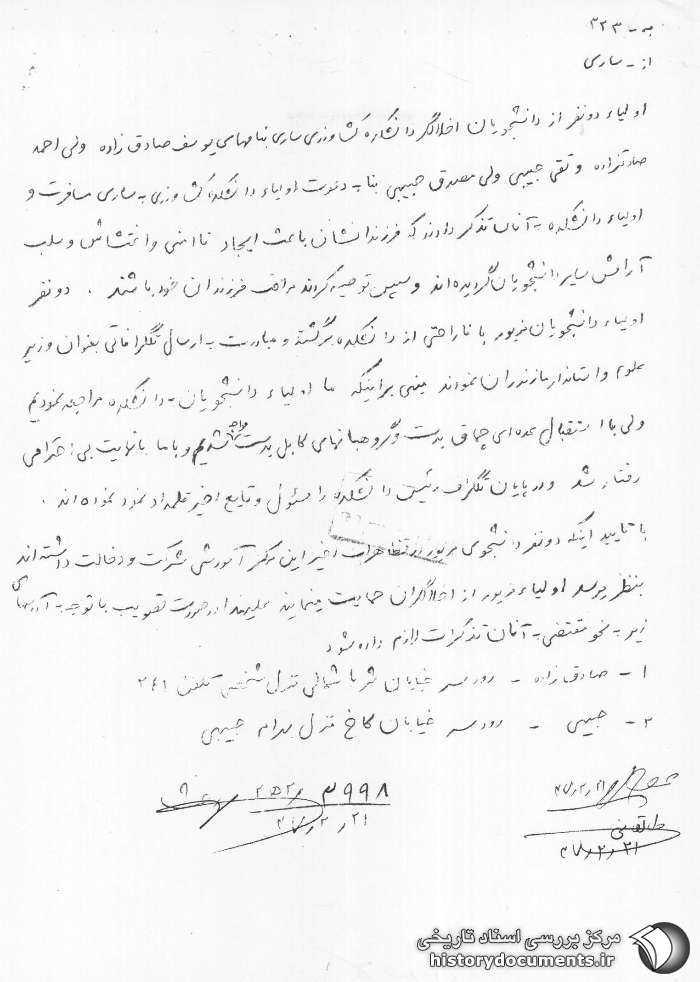 به - ۳۲۳
از - ساری
اولیاء دو نفر از دانشجویان اخلالگر دانشکده کشاورزی ساری بنامهای یوسف صادق زاده ولی احمد
صادقزاده و تقی حبیبی ولی مصدق حبیبی بنا به دعوت اولیاء دانشکده کشاورزی به ساری مسافرت و
اولیاء دانشکده به آنان تذکر دادند که فرزندانشان باعث ایجاد ناامنی و اغتشاش و سلب
آرامش سایر دانشجویان گردیده اند و سپس توصیه کردند مراقب فرزندان خود باشند . دو نفر
اولیاء دانشجویان مزبور با ناراحتی از دانشکده برگشته و مبادرت به ارسال تلگرافاتی بعنوان وزیر
علوم و استاندار مازندران نمودند مبنی بر اینکه ما اولیاء دانشجویان به دانشکده مراجعه نمودیم
ولی با استقبال عده ای چماق بدست و گروهبانهای کابل بدست مواجه شدیم و با ما با نهایت بی احترامی
رفتار شد و در پایان تلگراف رئیس دانشکده را مسئول وقایع اخیر قلمداد نموده اند .
با تایید اینکه دو نفر دانشجوی مزبور در تظاهرات اخیر این مرکز آموزشی شرکت و دخالت داشته اند
بنظر میرسد اولیاء مزبور از اخلالگران حمایت مینمایند علیهذا در صورت تصویب با توجه به آدرسهای
زیر به نحو مقتضی به آنان تذکرات لازم داده شود
۱ - صادق زاده - رودسر خیابان ثریا شمالی منزل شخصی تلفن ۲۶۱
۲ - حبیبی - رودسر خیابان کاخ منزل بهرام حبیبی
۳۹۹۸
۲۱ر۲ر۳۷
طالقانی
۳۷ر۲ر۲۱
مرکز بررسی اسناد تاریخی
historydocuments.ir